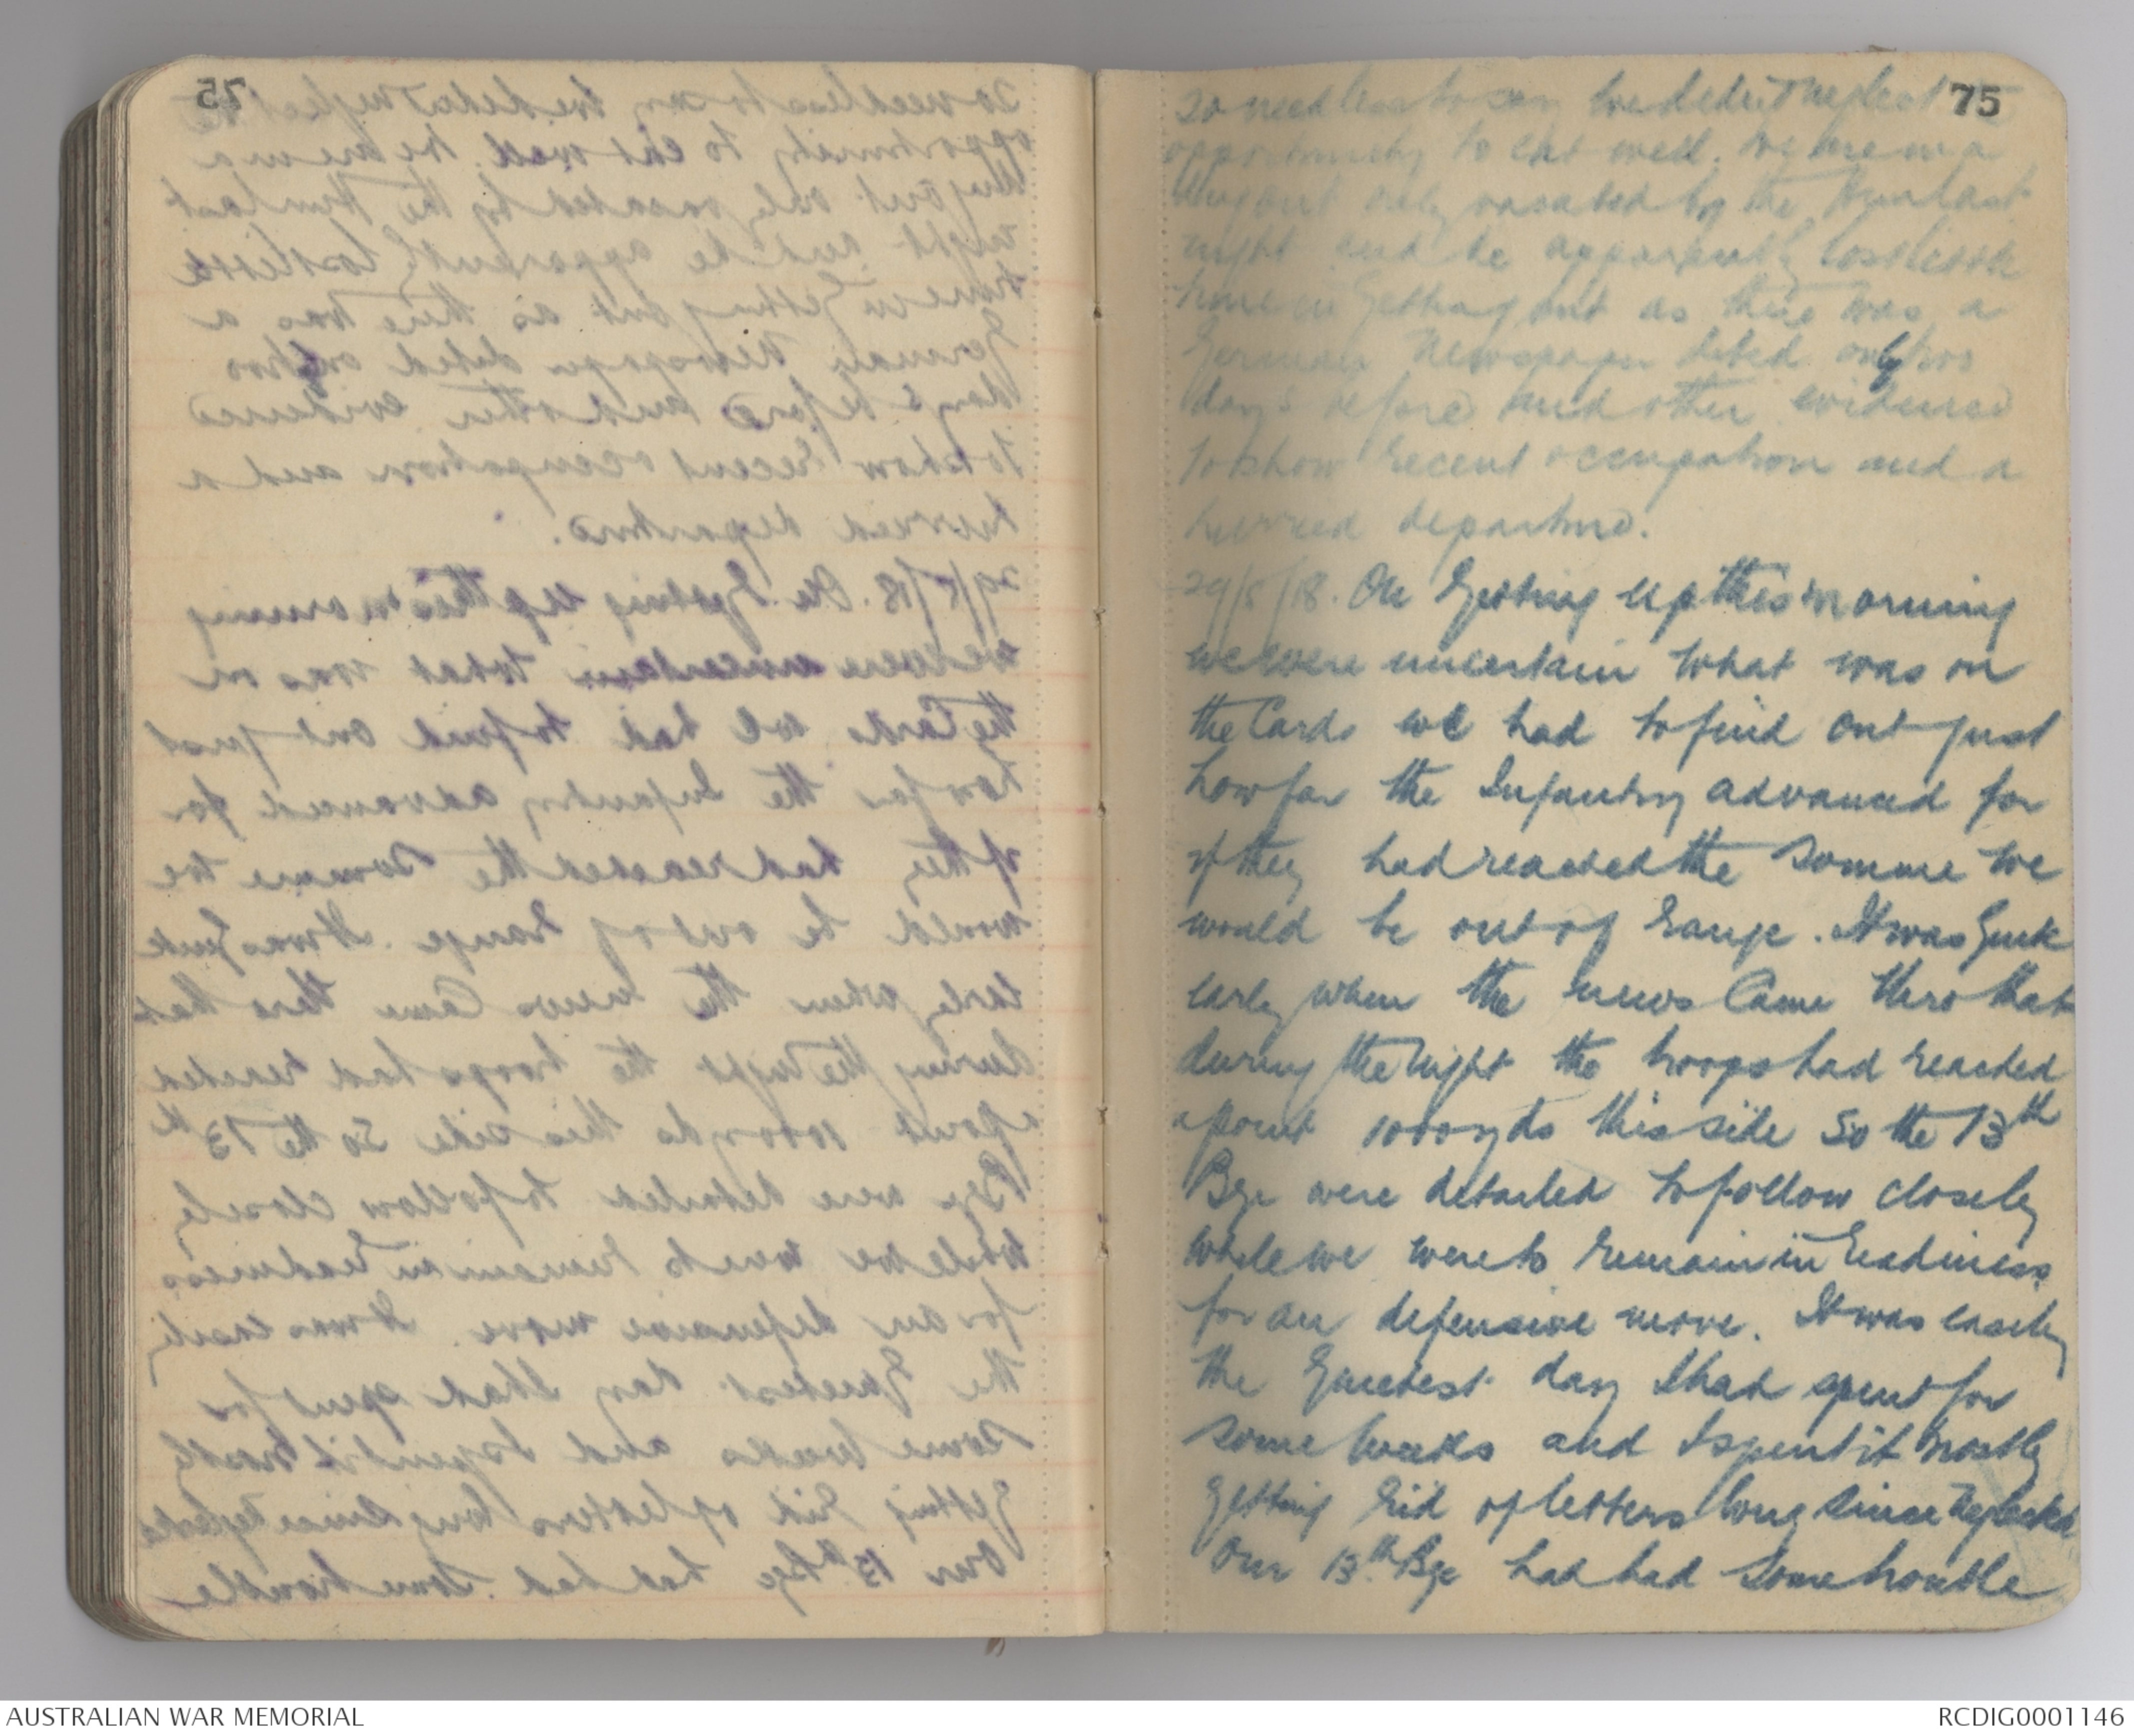 75
So needless to say we didn't neglect the
opportunity to eat well. We are in a
dugout only vacated by the Hun last
night and he apparently lost little
time in getting out as there was a
German newspaper dated only two
days before and other evidence
to show recent occupation and a
hurried departure.
29/8/18. On getting up this morning
we were uncertain what was on
the Cards we had to find out just
how far the Infantry advanced for
if they had reached the Somme we
would be out of range. It was quite
early when the news Came thro that
during the night the troops had reached
a point 1000 yds this side So the 13th
Bge were detailed to follow closely
while we were to remain in readiness
for an defensive move. It was easily
the quietest day I had spent for
some weeks and I spent it mostly
getting rid of letters long since neglected
Our 13th Bge had had some trouble
AUSTRALIAN WAR MEMORIAL
RCDIG0001146